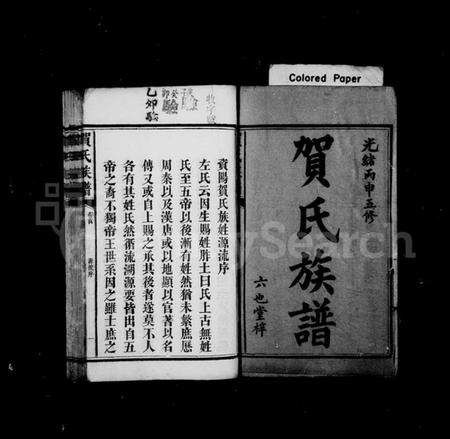 Colored Paper
光緒丙申五修
賀氏族譜
六也堂梓
乙卯驗
癸卯驗
資陽賀氏族姓源流序
左氏云因生賜姓胙土曰氏上古無姓
氏至五帝以後漸有姓然猶未繁庶歷
周秦以及漢唐或以地顯以官著以名
傳又或自上賜之承其後者遂莫不人
各有其姓氏然循流溯源要皆出自五
帝之裔不獨帝王世系因之雖士庶之
賀氏族譜
MySearch